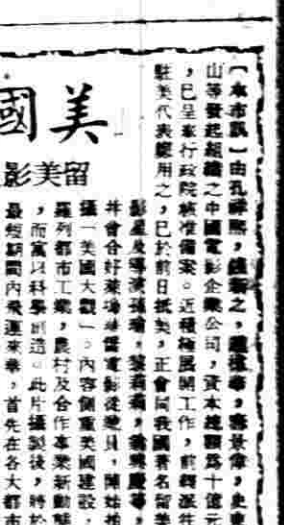 美國
留美影
【本市訊】由孔祥熙,
山等發起組織之中國電影企業公司,資本總額爲十億元
,已呈奉行政院核准備案。近積極展開工作,前
駐美代表用之,已於前日抵美,正會同我國著名留美
影星及導演孫瑜,黎莉莉,等,
并會合好萊塢華僑電影從業員,開始拍
攝「美國大觀」。內容側重美國建設,
羅列都市工業,農村及合作事業新動態
,而富以科學創造。此片攝製後,將於
最短期間內飛運來華,首先在各大都市